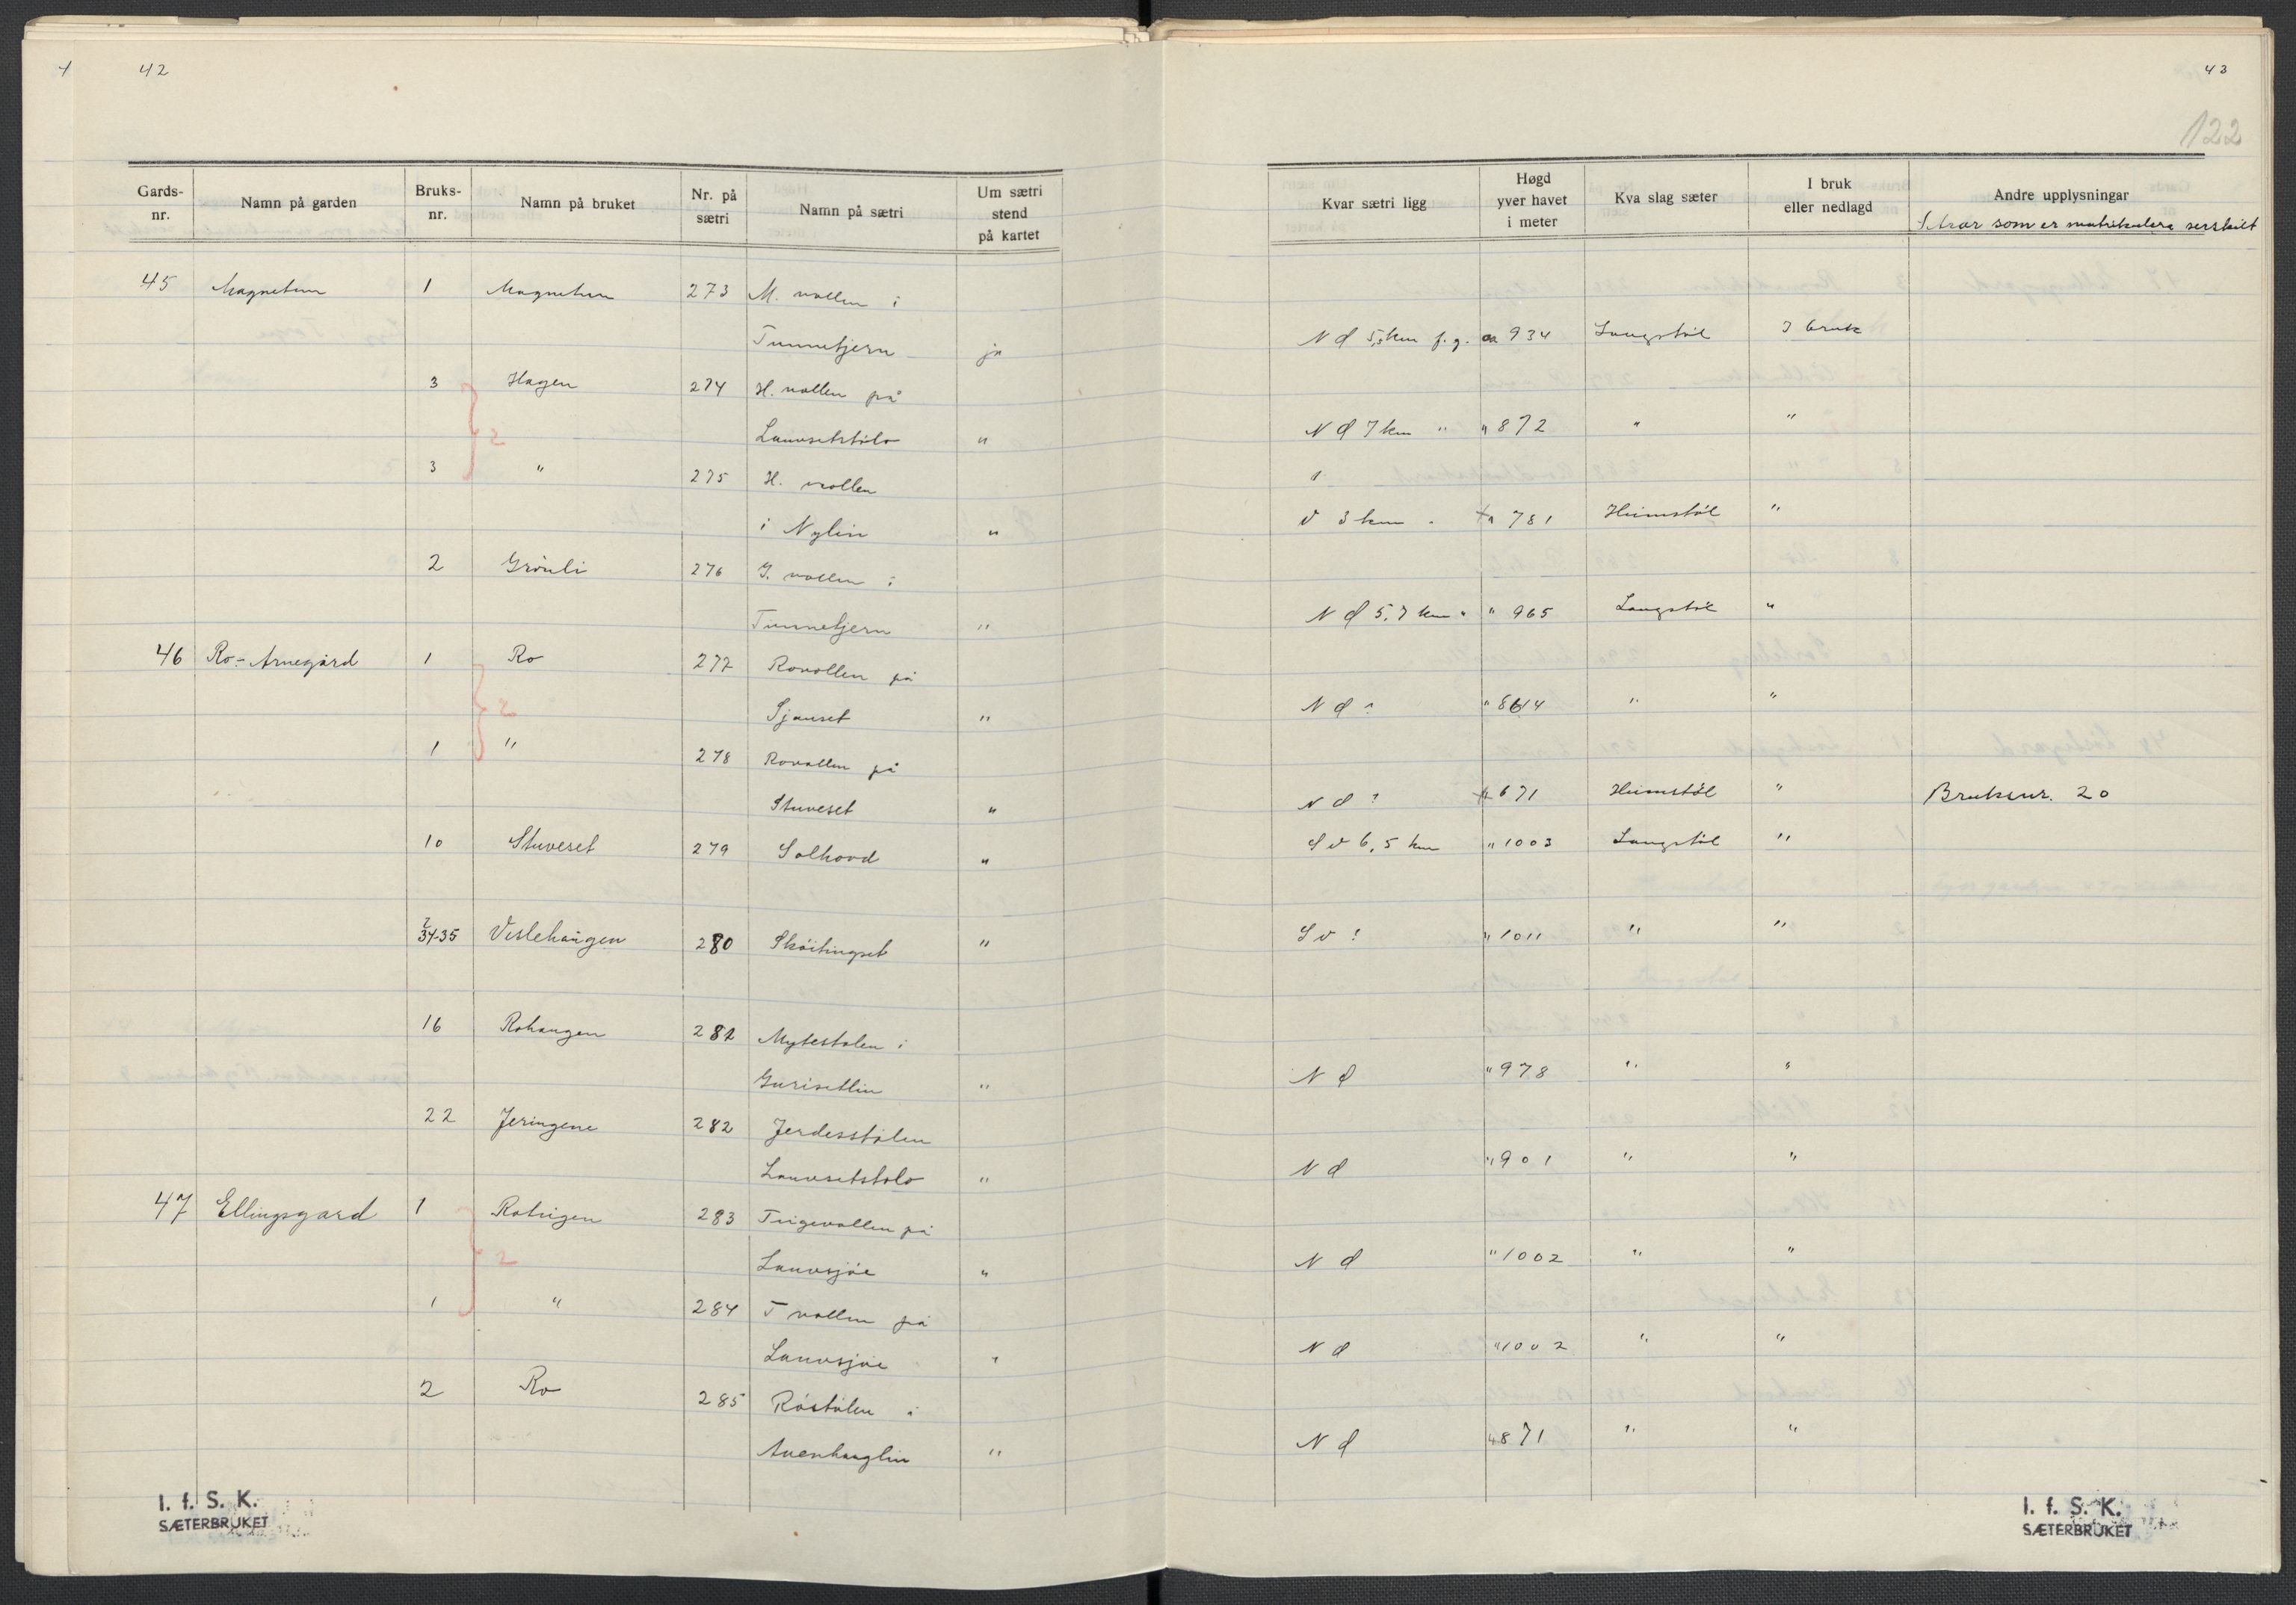 42
43
122
Gards-nr. Namn på garden Bruks-nr. Namn på bruket Nr. på sætri Namn på sætri Um sætri stend på kartet
Kvar sætri ligg Høgd yver havet i meter Kva slag sæter I bruk eller nedlagd Andre upplysningar
som er matrikulera serskilt
45 Magnetun 1 Magnetun 273 M. vollen i
Tunnetjern ja N d 5,5 km f. g. ca 934 Langstöl I bruk
3 Hagen 274 H. vollen på
2 Lauvsetstölo " N d 7 km " " 872 " "
3 " 275 H. vollen
i Nylin " V 3 km " 781 Heimstöl "
2 Grönli 276 G. vollen i
Tunnetjern " N d 5,7 km " " 965 Langstöl "
46 Ro-Arnegård 1 Ro 277 Rovollen på
2 " N d ? " " "
1 " 278 Rovollen på
Stuveset " N d ? 671 Heimstöl " Bruksnr. 20
10 Stuveset 279 Solhovd " S v 6,5 km " 1003 Langstöl "
34-35 Veslehaugen 280 Sköitingset " S v ? " 1011 " "
16 Rohaugen 281 Mytestolen i
Gurisetlin " N d " 978 " "
22 Jeringene 282 Jerdesstölen
Lauvsetstolo " N d " 901 " "
47 Ellingsgard 1 283 Trigevollen på
2 Lauvsjöe " N d " 1002 " "
1 " 284 T vollen på
Lauvsjöe " N d " 1002 " "
2 Ro 285 Röstölen i
" N d " 871 " "
I. f. S. K.
SÆTERBRUKET
I. f. S. K.
SÆTERBRUKET